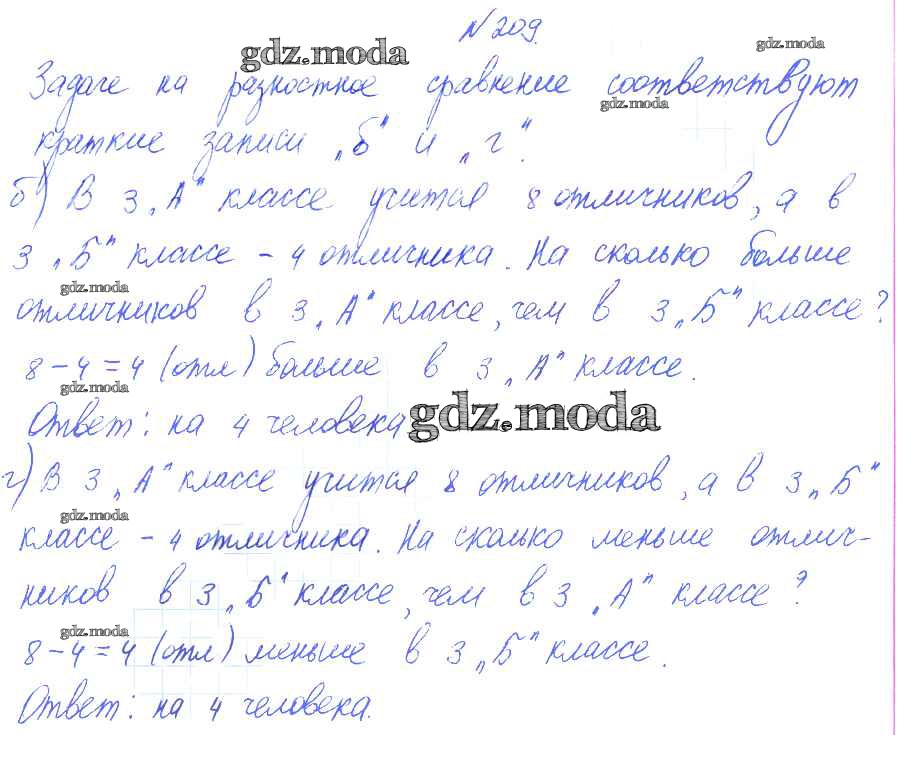 № 209.
gdz.moda
gdz.moda
Задаче на разностное сравнение соответствуют
gdz.moda
краткие записи „б" и „г".
б) В 3 „А" классе учится 8 отличников, а в
3 „Б" классе – 4 отличника. На сколько больше
gdz.moda
отличников в 3 „А" классе, чем в 3 „Б" классе?
8 – 4 = 4 (отл) больше в 3 „А" классе.
gdz.moda
Ответ: на 4 человека
gdz.moda
г) В 3 „А" классе учится 8 отличников, а в 3 „Б"
gdz.moda
классе – 4 отличника. На сколько меньше отлич-
ников в 3 „Б" классе, чем в 3 „А" классе?
gdz.moda
8 – 4 = 4 (отл) меньше в 3 „Б" классе.
Ответ: на 4 человека.